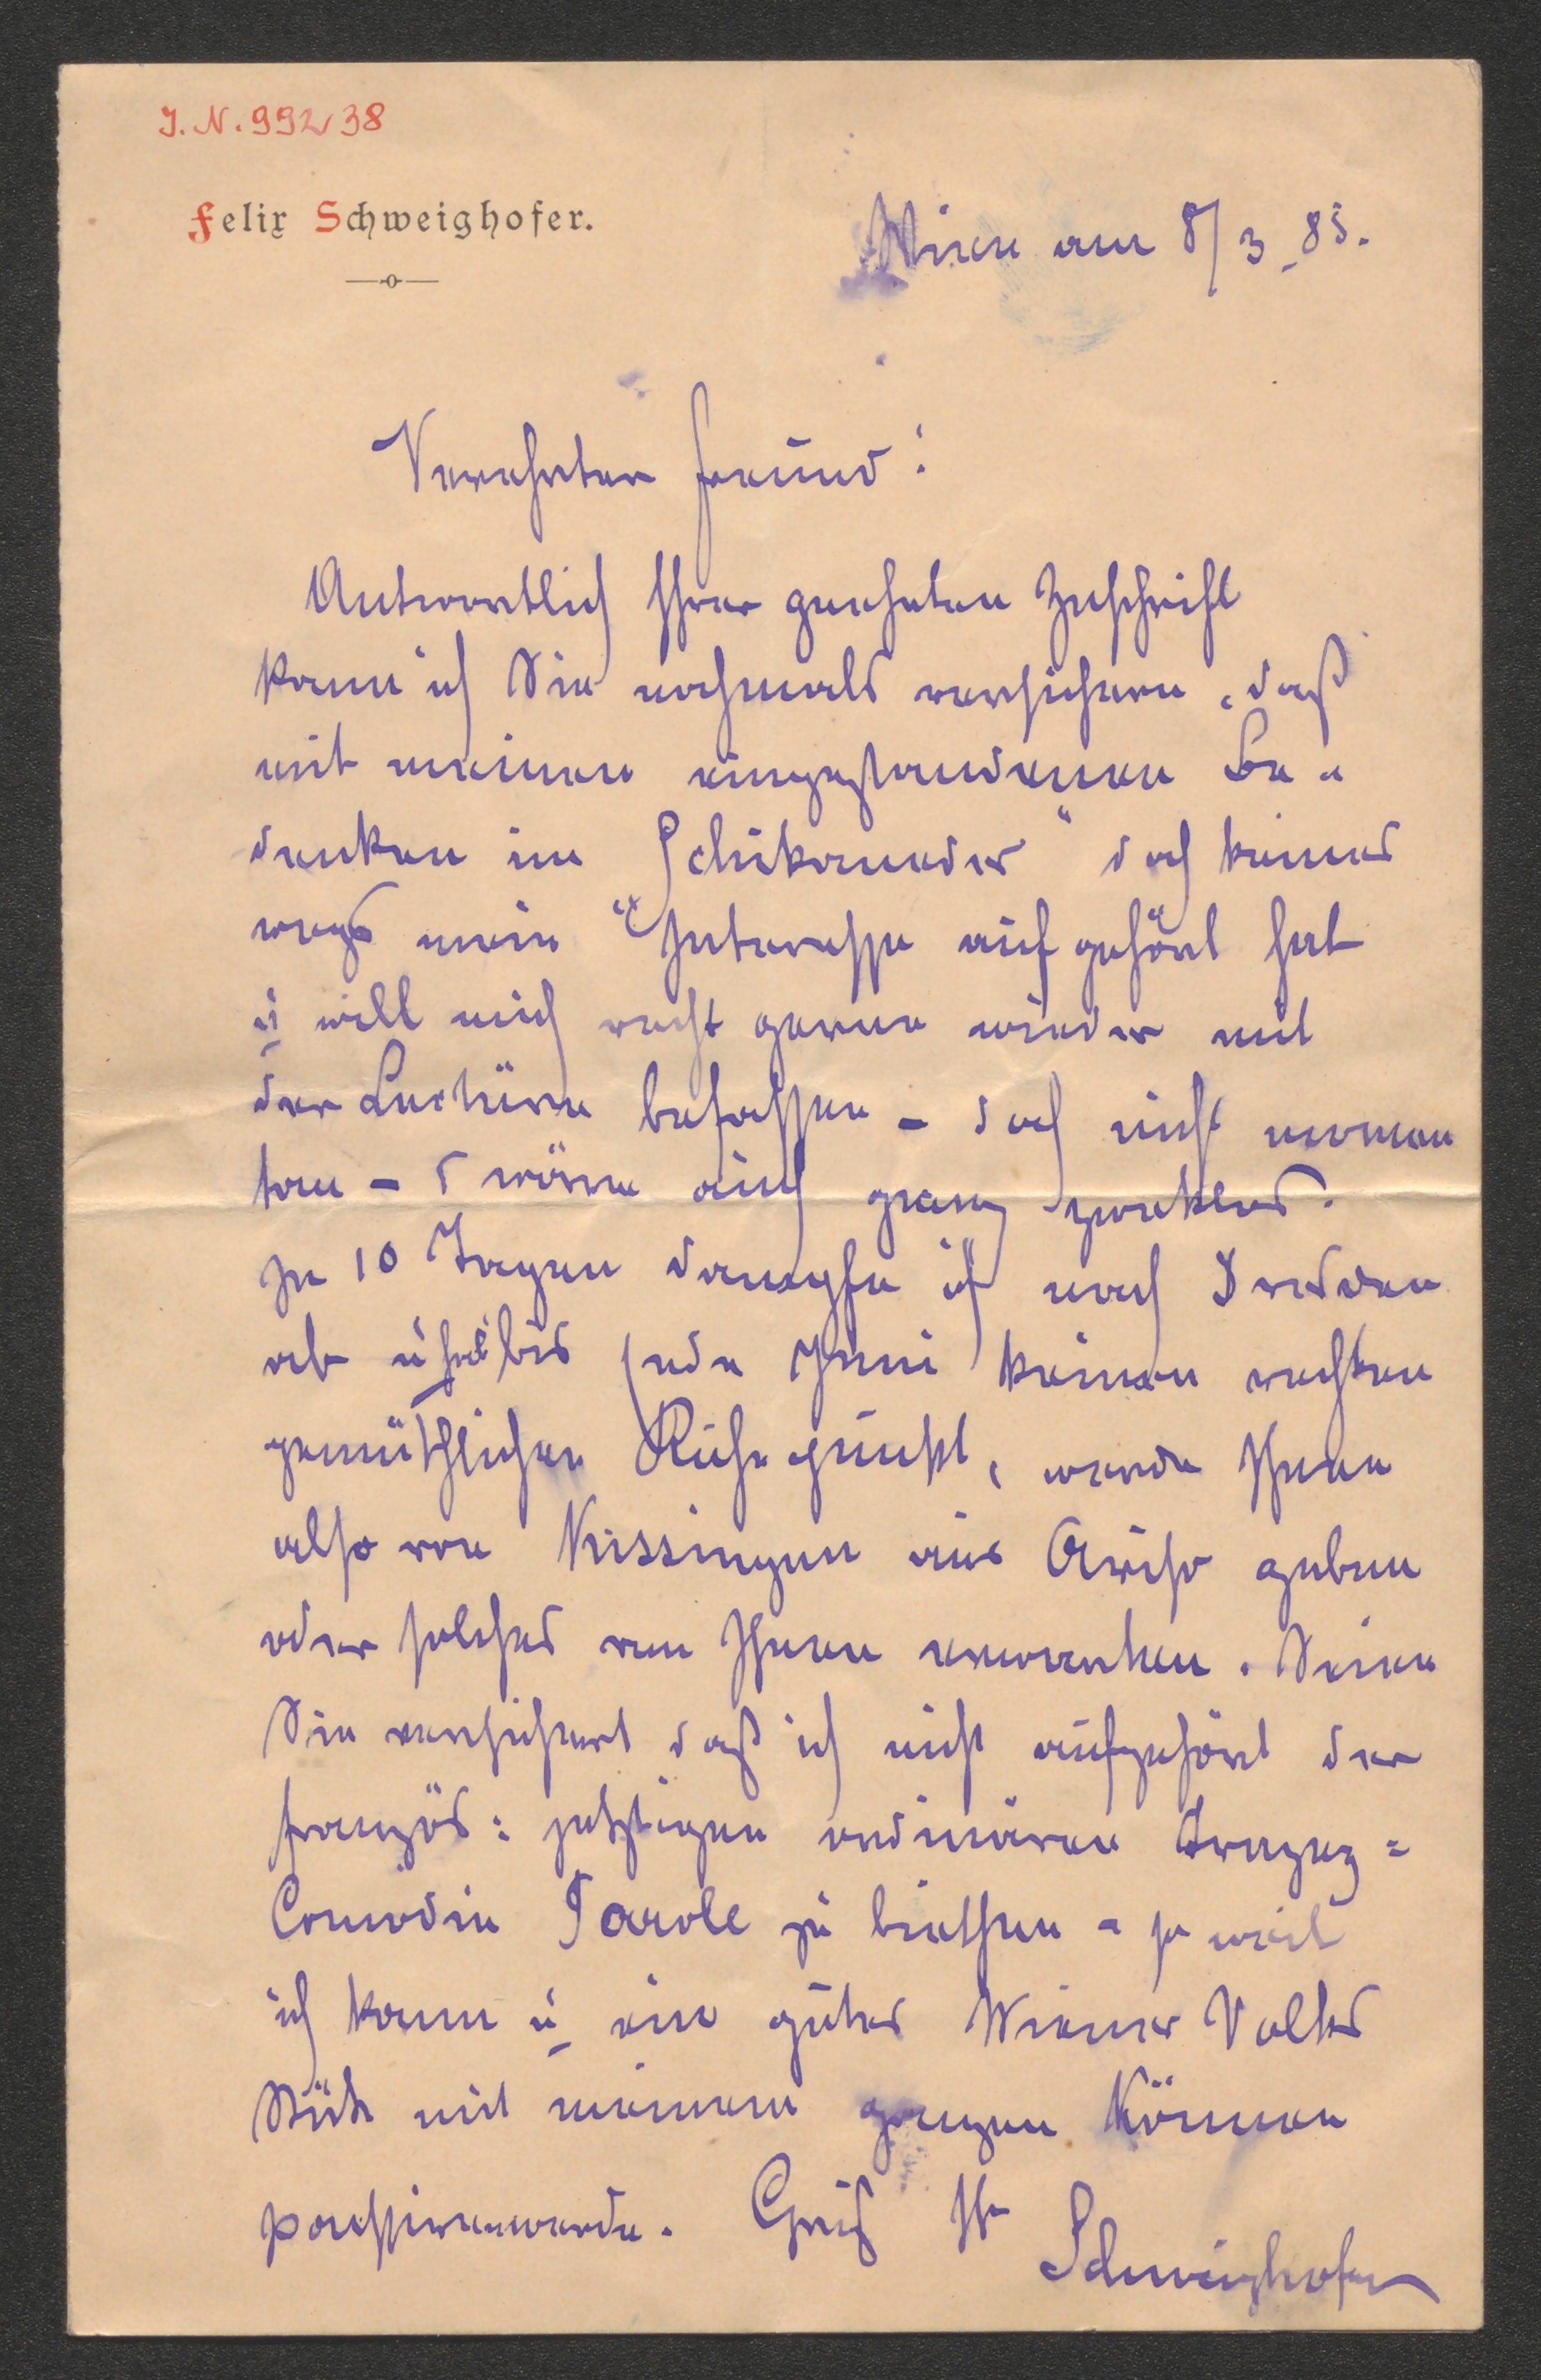 J. N. 99238
Felix Schweighofer.
Wien am 8/3_85.
Verehrter Freund!
Antwortlich Ihrer geehrten Zuschrift
kann ich Sie nochmals versichern, daß
mit meinen eingestandenen Be-
denken im Schikaneder" doch keines
wegs mein Interesse aufgehört hat
u will mich recht gerne wieder mit
der Lectüre befassen – doch nicht momen
tan – s wäre auch ganz zwecklos.
In 10 Tagen dampfe ich nach Dresden
ab u hab bis Ende Juni keinen rechten
gemüthlichen Ruhepunkt, werde Ihnen
also von Kissingen aus Aviso geben
oder solches von Ihnen erwarten. Seien
Sie versichert daß ich nicht aufgehört der
französ: jetztigen ordinären Trapez=
Comödie Parole zu biethen – so weit
ich kann u ein gutes Wiener Volks
Stück mit meinem ganzen Können
poussiren werde. Gruß Ihr
Schweighofer